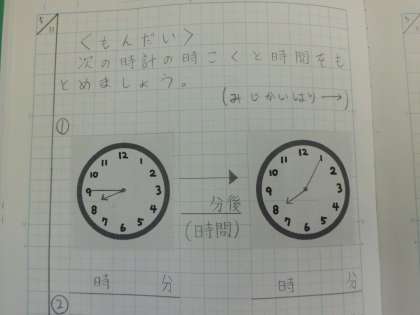 5/11
<もんだい>
次の時計の時こくと時間をも
とめましょう。
(みじかいはり→)
①
12 1 2 3 4 5 6 7 8 9 10 11
分後
(時間)
12 1 2 3 4 5 6 7 8 9 10 11
時 分
時 分
②